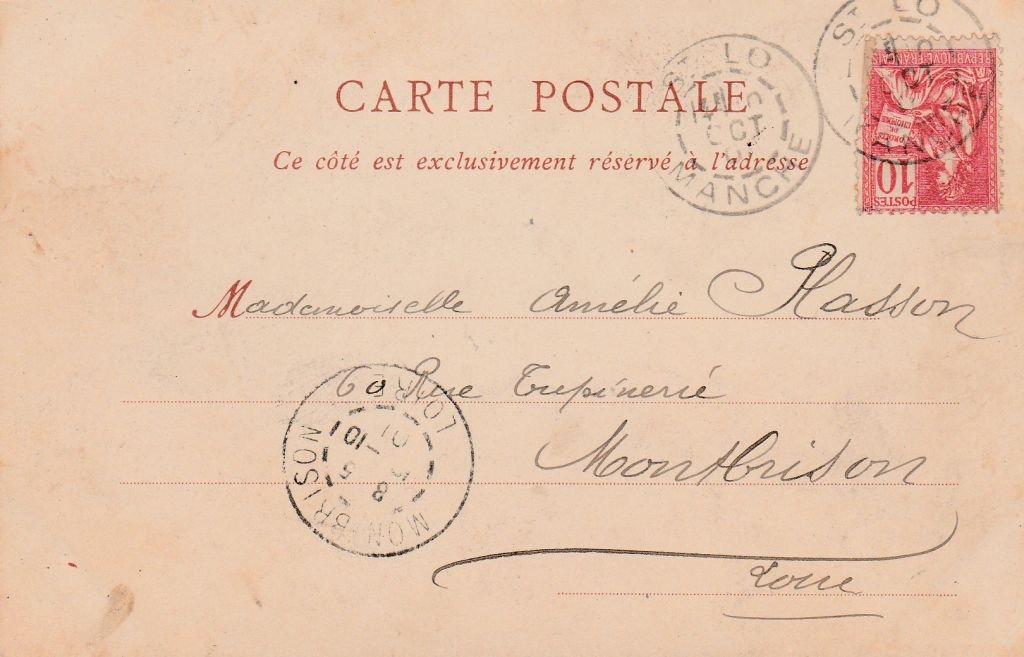 CARTE POSTALE
Ce côté est exclusivement réservé à l'adresse
ST LO
OCT
MANCHE
ST LO
MANCHE
RÉPUBLIQUE FRANÇAISE
DROITS
DE
L'HOMME
10
POSTES
Mademoiselle Amélie Plasson
60 Rue Tupinerié
Montbrison
Loire
MONTBRISON
LOIRE
8
5 -10
01